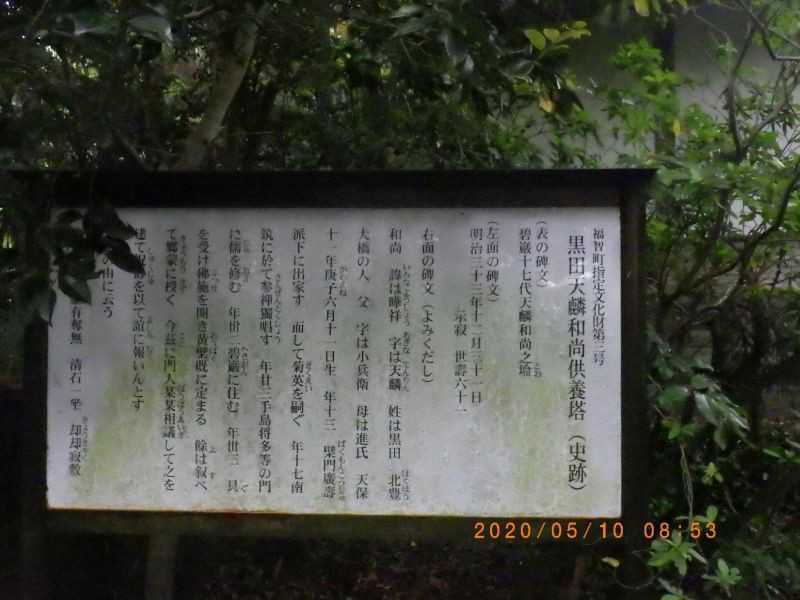 福智町指定文化財第三号
黒田天麟和尚供養塔（史跡）
（表の碑文）
碧巌十七代天麟和尚之塔
（左面の碑文）
明治三十三年十二月三十一日
示寂　世壽六十一
右面の碑文（よみくだし）
和尚　諱は曄祥　字は天麟　姓は黒田　北豊
大橋の人　父　字は小兵衛　母は進氏　天保
十一年庚子六月十一日生　年十三　檗門廣壽
派下に出家す　而して菊英を嗣ぐ　年十七南
筑に於て参禅獨唱す　年廿三手島将多等の門
に儒を修む　年卅二碧巌に住む　年卅三　具
を受け佛施を開き黄檗既に定まる　餘は叙べ
て郷蒙に授く　今茲に門人某某相議して之を
建て以て誼に報いんとす
の由に云う
有奪無　清石一坐　却却寂数
2020/05/10 08:53